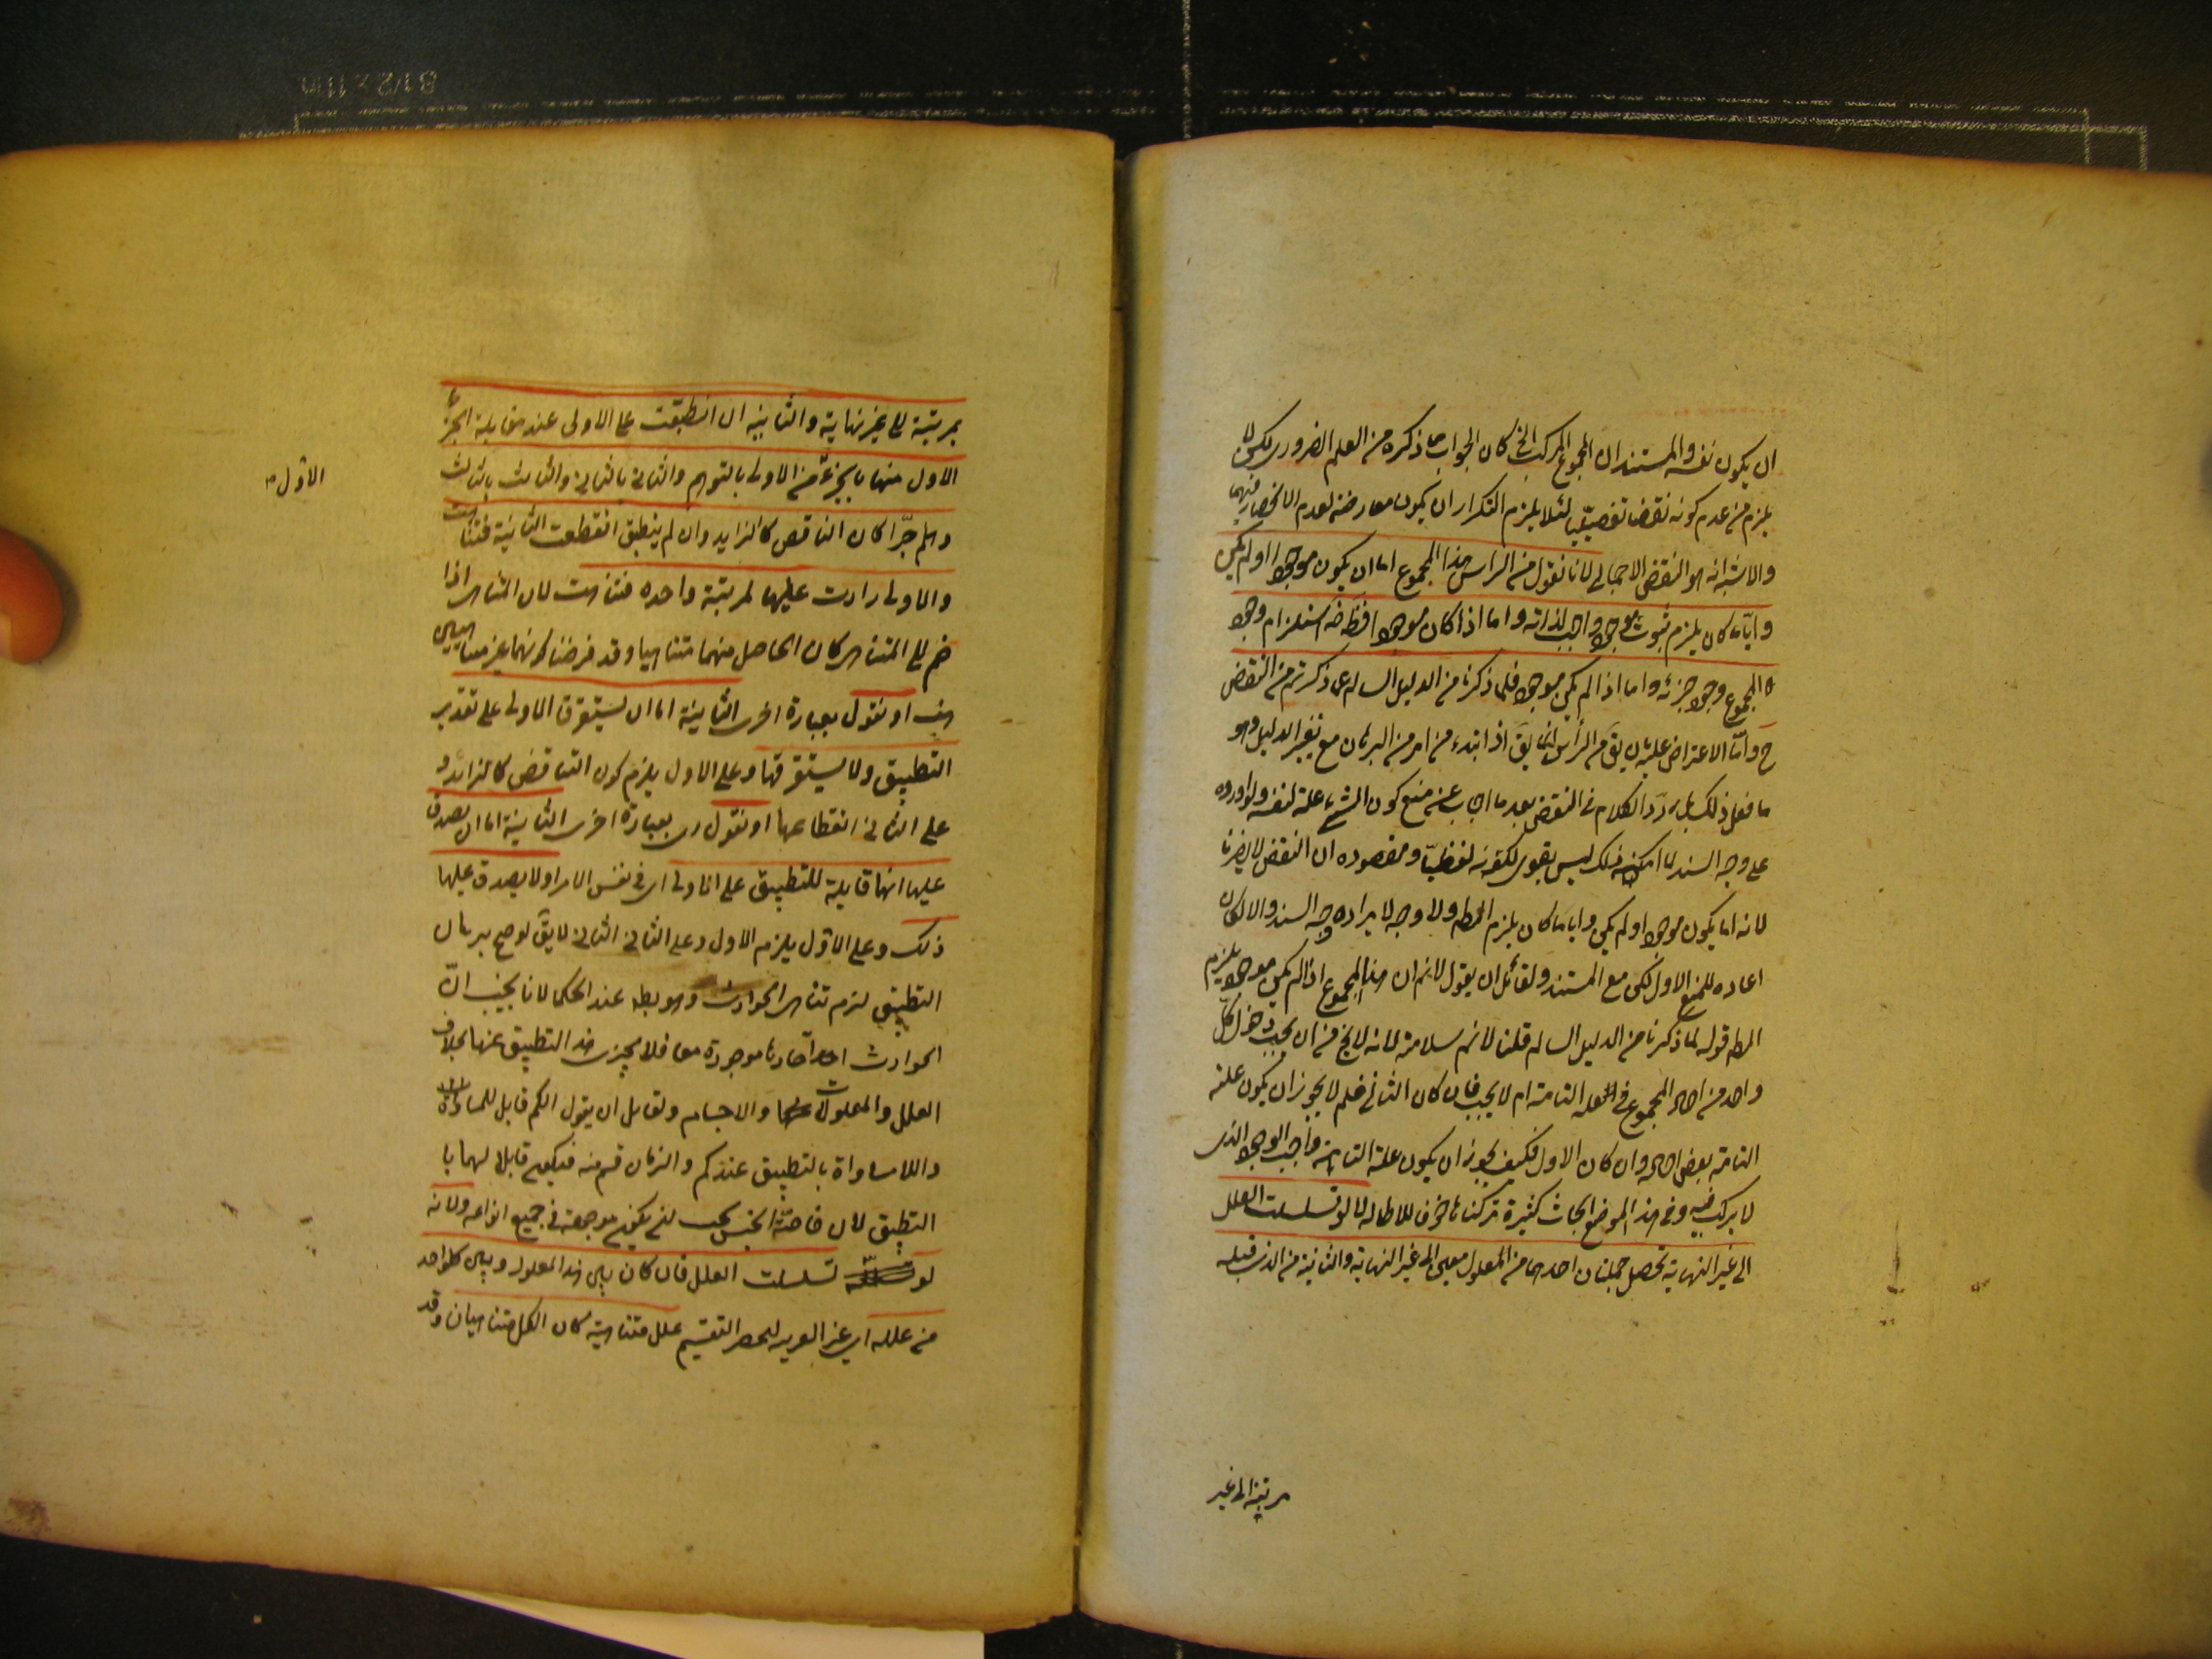 ان يكون نفسه والمستند ان المجموع المركب الخ كان الجواب ما ذكره من العلم الضروري لكن لا
يلزم من عدم كونه نقضا تفصيليا لئلا يلزم التكرار ان يكون معارضة لعدم الانحصار فيهما
والاشبه انه هو النقض الاجمالي لانا نقول من الراس هذا المجموع اما ان يكون موجودا او لم يكن
وايّاما كان يلزم ثبوت موجود واجب لذاته واما اذا كان موجودا استلزام وجود
المجموع وجود جزئه واما اذا لم يكن موجودا فلما ذكرنا من الدليل السالم عما ذكرتم من النقض
ح وامّا الاعتراض عليه من الرأس انما يق اذا ابتدء من امر من البرهان مع تغير الدليل وهو
ما فعل ذلك بل ردّ الكلام في النقض بعد ما اجاب عنه منع كون الشيء علة لنفسه ولو اورده
على وجه السند لا امكنه ذلك ليس بقوى لكونه لفظيّا ومقصوده ان النقض لا يضرنا
لانه اما يكون موجودا او لم يكن واياما كان يلزم المطه ولا وجه لايراده وجه السند والا لكان
اعاده للمنع الاول لكن مع المستند ولقائل ان يقول لانم ان هذا المجموع اذا لم يكن موجودا يلزم
المطه قوله لما ذكرنا من الدليل السالم قلنا لانم سلامته لانه لا يخ من ان يجب دخول كل
واحد من احاد المجموع في العله التامة ام لا يجب فان كان الثاني فلم لا يجوز ان يكون علته
التامة بعض احاده وان كان الاول فكيف يجوز ان يكون علة التامة واجب الوجود الذى
لا يركب فيه وفي هذا الموضع ابحاث كثيرة تركناها خوف للاطاله لا لو تسلسلت العلل
الى غير النهاية تحصل جملتان احدهما من المعلول معين الى غير النهاية والثانية من الذى قبله
مرتبة الى غير
بمرتبة الى غير نهاية والثانية ان انطبقت على الاولى عند مقابلة الجزء
الاول منها بالجزء من الاولى بالتوهم والثانى بالثانى والثالث بالثالث
الاول
وهلم جرّا كان الناقص كالزايد وان لم ينطبق انقطعت الثانية فتناهت
والاولى زادت عليها لمرتبة واحده فتناهت لان المتناهى اذا
ضم الى المتناهى كان الحاصل منهما متناهيا وقد فرضنا كونهما غير متناهيين
هف او نقول بعبارة اخرى الثانية اما ان يستغرق الاولى على تقدير
التطبيق ولا يستغرقها وعلى الاول يلزم كون الناقص كالزائد و
على الثانى انقطاعها او نقول بعبارة اخرى الثانية اما ان يصدق
عليها انها قابلة للتطبيق على الاولى اى في نفس الامر او لا يصدق عليها
ذلك وعلى الاوّل يلزم الاول وعلى الثانى الثانى لا يق لو صح برهان
التطبيق لزم تناهى الحوادث وهو بطه عند الحكما لانا نجيب انّ
الحوادث احادها موجودة معا فلا يجرى هذا التطبيق عنها بخلاف
العلل والمعلولات والاجسام ولقايل ان يقول الكم قابل للمساواة
واللا مساواة بالتطبيق عندكم والزمان قسم منه فيكون قابلا لهما با
التطبيق لان خاصّة الجنس يجب ان يكون موجودة في جميع انواعه ولانه
لو تسلسلت العلل فان كان بين هذا المعلول وبين كل واحد
من علله اى غير العدد لحصر التقسيم علل متناهية كان الكل متناهيان وقد